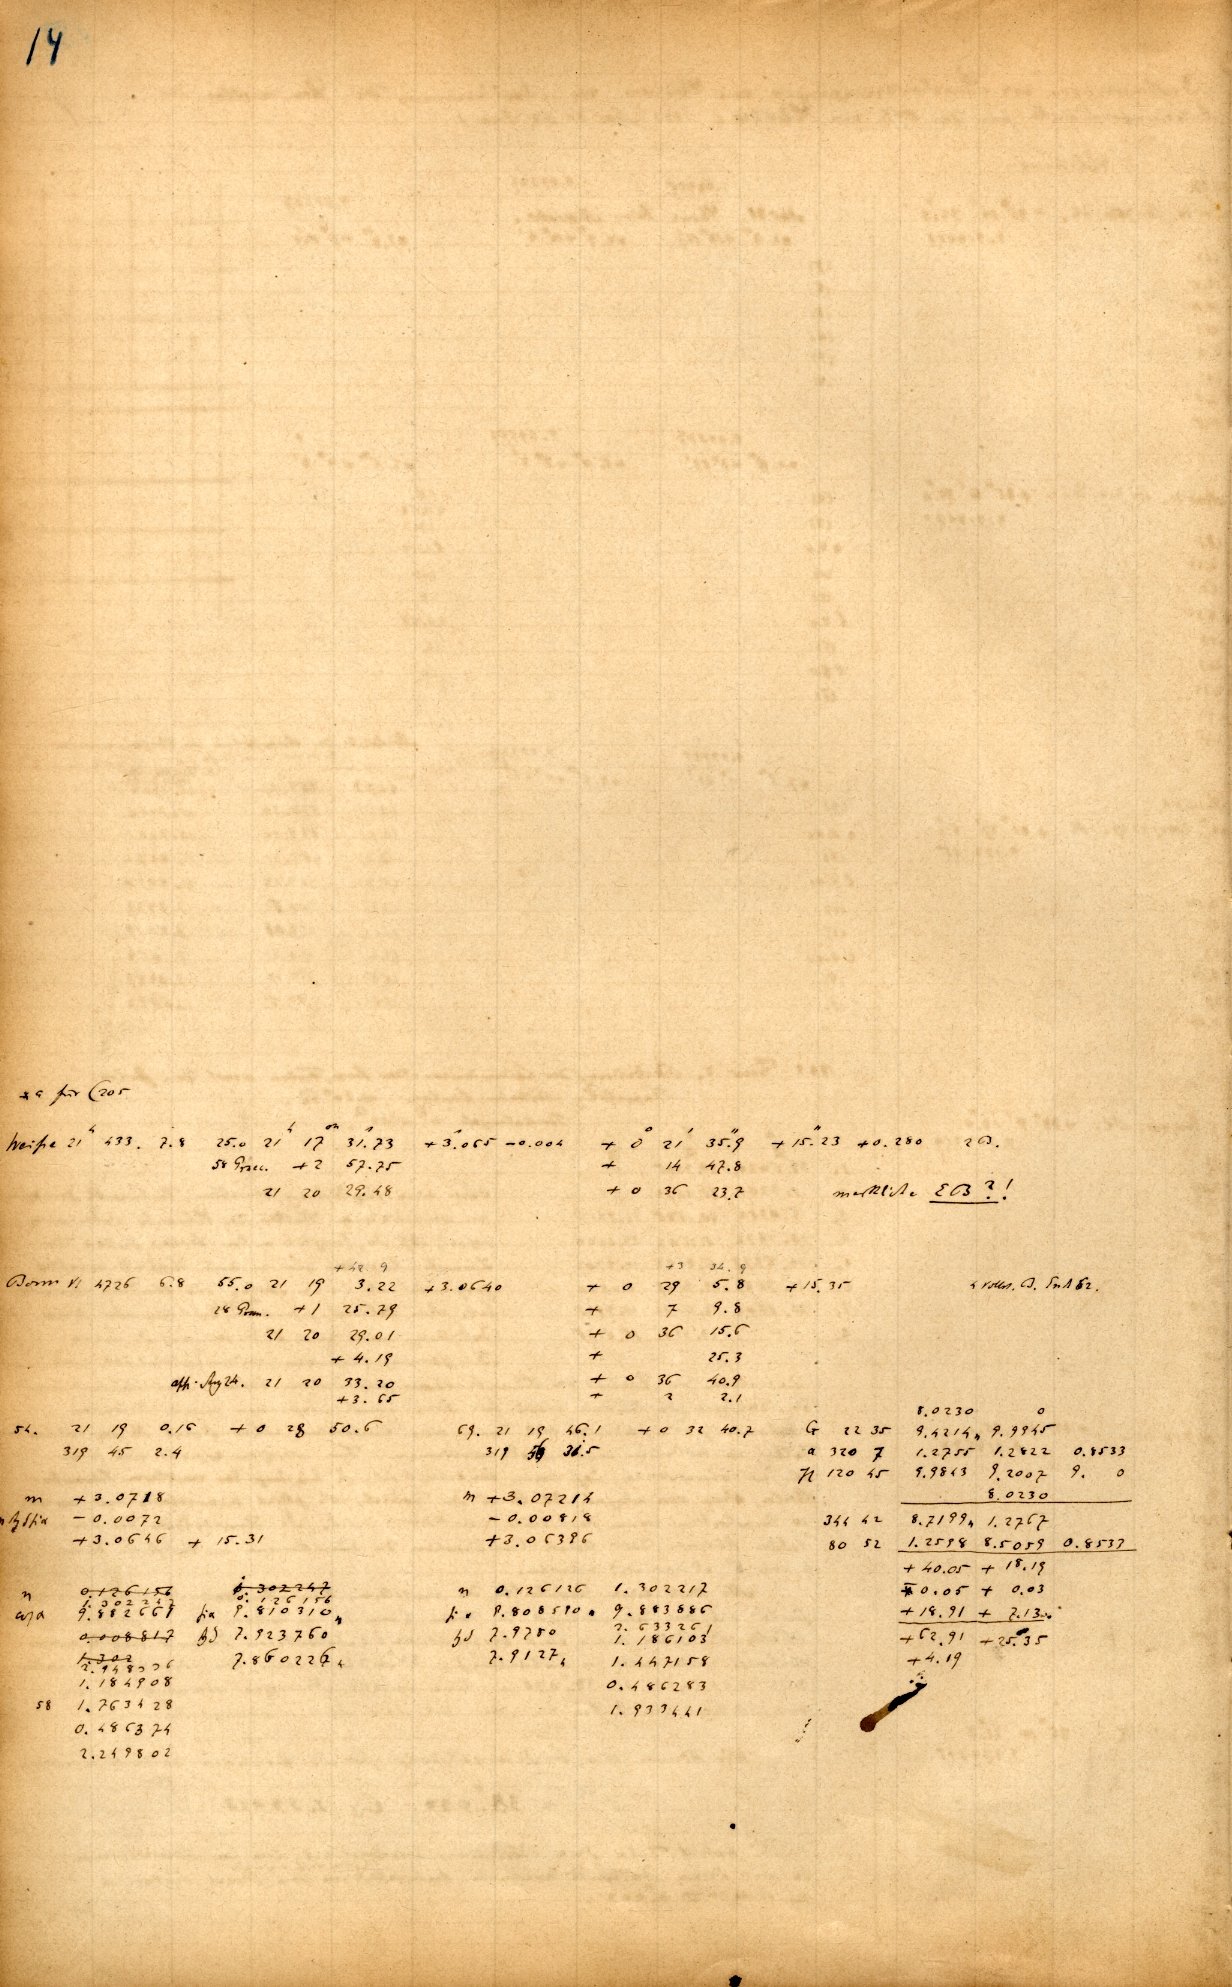 14
* a für C 205
Weisse 21ʰ 433. 7.8 25.0 21ʰ 17ᵐ 31.73 +3.065 -0.004 + 0° 21' 35"9 +15"23 +0.280 2 B.
58 Praec. +2 57.75 + 14 47.8
21 20 29.48 + 0 36 23.7 merkliche EB?!
+42 9 +3 34.9
Bonn VI 4726 6.8 55.0 21 19 3.22 +3.0640 + 0 29 5.8 +15.35 4 B.
28 Praec. +1 25.79 + 7 9.8
21 20 29.01 + 0 36 15.6
+4.19 + 25.3
app. Aug 24. 21 20 33.20 + 0 36 40.9
+3.65 + 2 2.1
8.0230 0
54. 21 19 0.16 + 0 28 50.6 69. 21 19 46.1 + 0 32 40.7 G 22 35 9.4214n 9.9945
319 45 2.4 319 56 31.5 a 320 7 1.2755 1.2822 0.8533
H 120 45 9.9843 9.2007 9. 0
8.0230
m +3.0718 m +3.07214
-0.0072 -0.00818 344 42 8.7199n 1.2767
+3.0646 +15.31 +3.06396 80 52 1.2598 8.5059 0.8533
+40.05 +18.19
n 0.126156 0.302247 n 0.126126 1.302217 +0.05 + 0.03
1.302247 0.126156
cos a 9.882661 sin 9.810310n sin 9.808590n 9.883886 +18.91 + 7.13
0.008817 tg δ 7.923760 tg δ 7.9780 2.633261 +62.91 +25.35
1.186103
1.302 7.860226n 7.9127n 1.447158 +4.19
2.948336
1.184908 0.486283
58 1.763428 1.933441
0.486374
2.249802